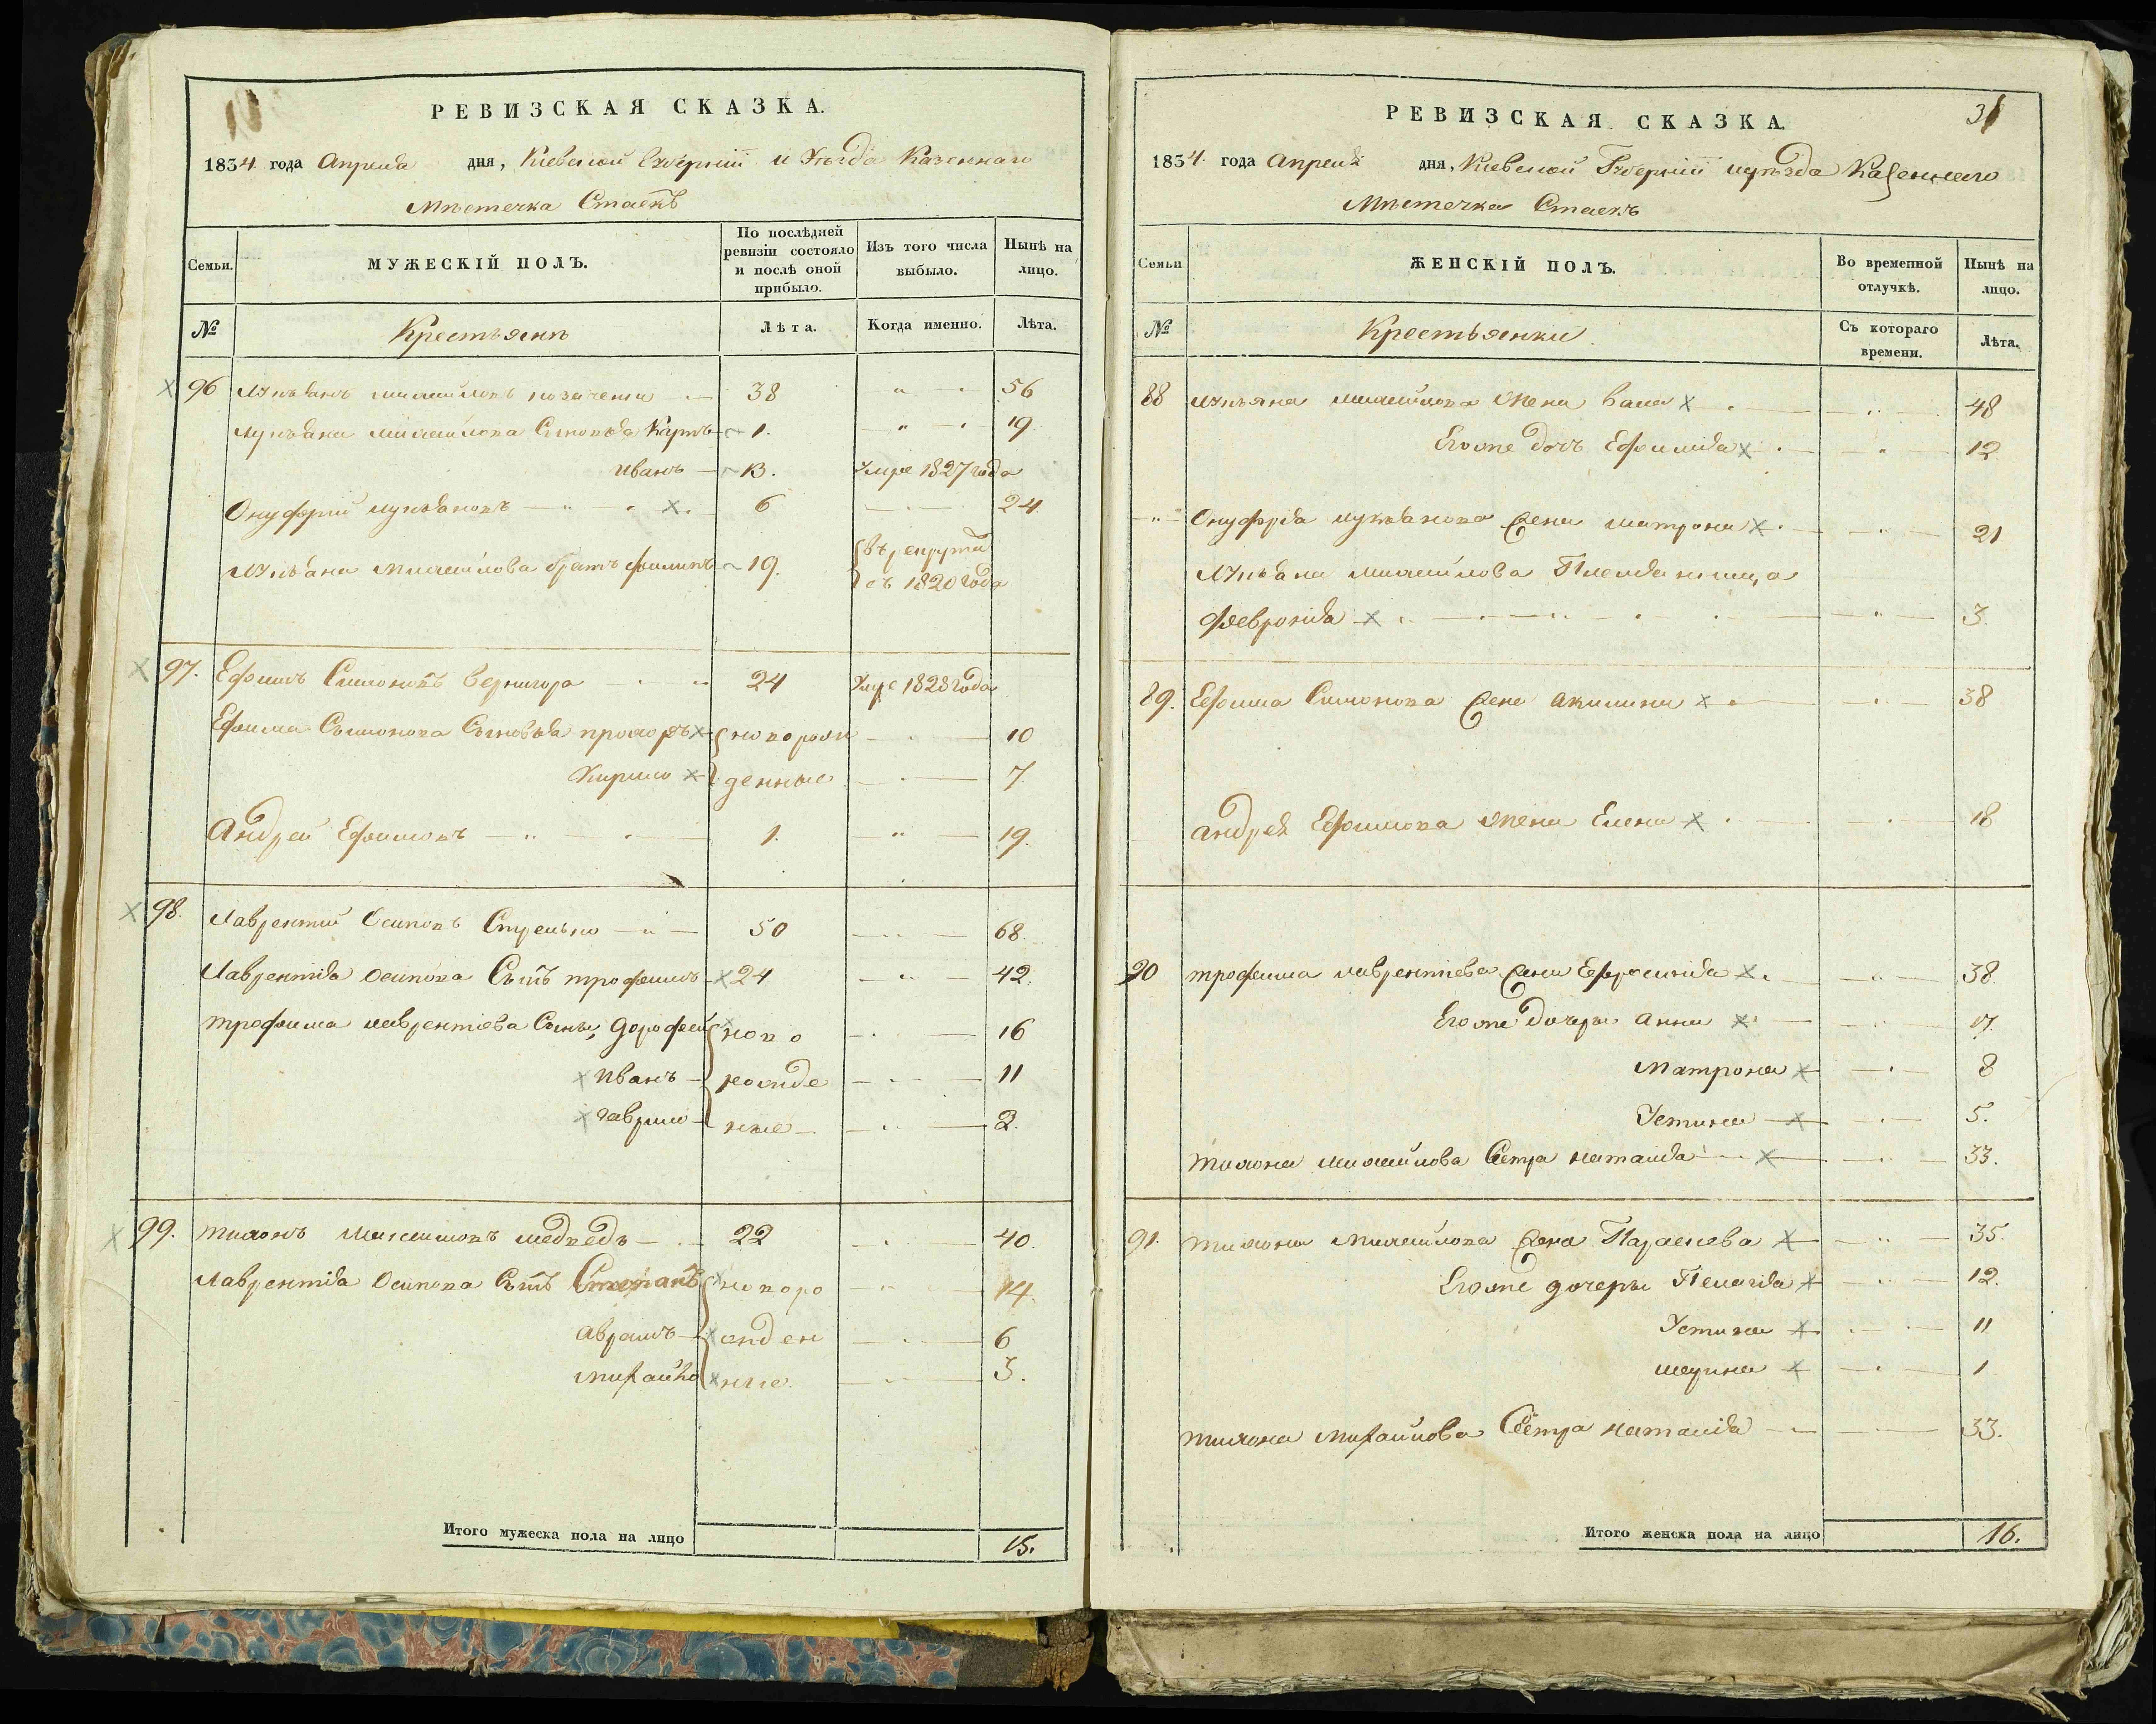 РЕВИЗСКАЯ СКАЗКА.
1834 года Апреля дня, Киевской Губернiи и Уезда Казеннаго
Мѣстечка Стаекъ
Семьи. МУЖЕСКІЙ ПОЛЪ. По послѣдней ревизіи состояло и послѣ оной прибыло. Изъ того числа выбыло. Нынѣ на лицо.
№ Крестьяне Лѣта. Когда именно. Лѣта.
96 Лукьянъ Михайловъ 38 56
Лукьяна Михайлова Сыновья Карпъ 1. 19
Иванъ 13. Умре 1827 года
Онуфрий Лукьяновъ 6 24
Лукьяна Михайлова братъ Филипъ 19. въ рекруты
съ 1820 года
97. Ефимъ Симоновъ Вернигора 24 Умре 1828 года
Ефима Симонова Сыновья новорож 10
Кирило денные 7.
Андрей Ефимовъ 1. 19.
98. Лаврентий Осиповъ 50 68.
Лаврентiя Осипова Сынъ Трофимъ 24 42.
Трофима Лаврентiева Сыны, Дорофей ново 16
Иванъ рожде 11
Гаврило ные 2.
99. Тихонъ Медведь 22 40.
Лаврентiя Осипова Сынъ Степанъ новоро 14.
Аврамъ жден 6
Михайло ные. 3.
Итого мужеска пола на лицо 15.
РЕВИЗСКАЯ СКАЗКА. 31
1834 года Апреля дня, Киевской Губернiи и уезда Казеннаго
Мѣстечка Стаекъ
Семьи ЖЕНСКІЙ ПОЛЪ. Во временной отлучкѣ. Нынѣ на лицо.
№ Крестьянки Съ котораго времени. Лѣта.
88 Лукьяна Михайлова жена 48
Его же дочь Ефимiя 12
Онуфрiя Лукьянова жена Матрона 21
Лукьяна Михайлова Племянница
Февронiя 3.
89. Ефима Симонова жена Акилина 38
Андрея Ефимова жена Елена 18
90 Трофима Лаврентiева жена Ефросинiя 38.
Его же дочери Анна 17.
Матрона 8
Устина 5.
Тихона Михайлова Сестра Наталiя 33.
91. Тихона Михайлова жена Параскева 35.
Его же дочери Пелагiя 12.
Устина 11
Марина 1
Тихона Михайлова Сестра Наталiя 33.
Итого женска пола на лицо 16.